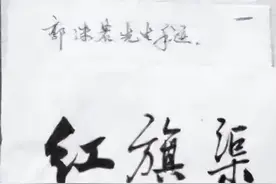 一
郭沫若先生手迹.
红旗渠